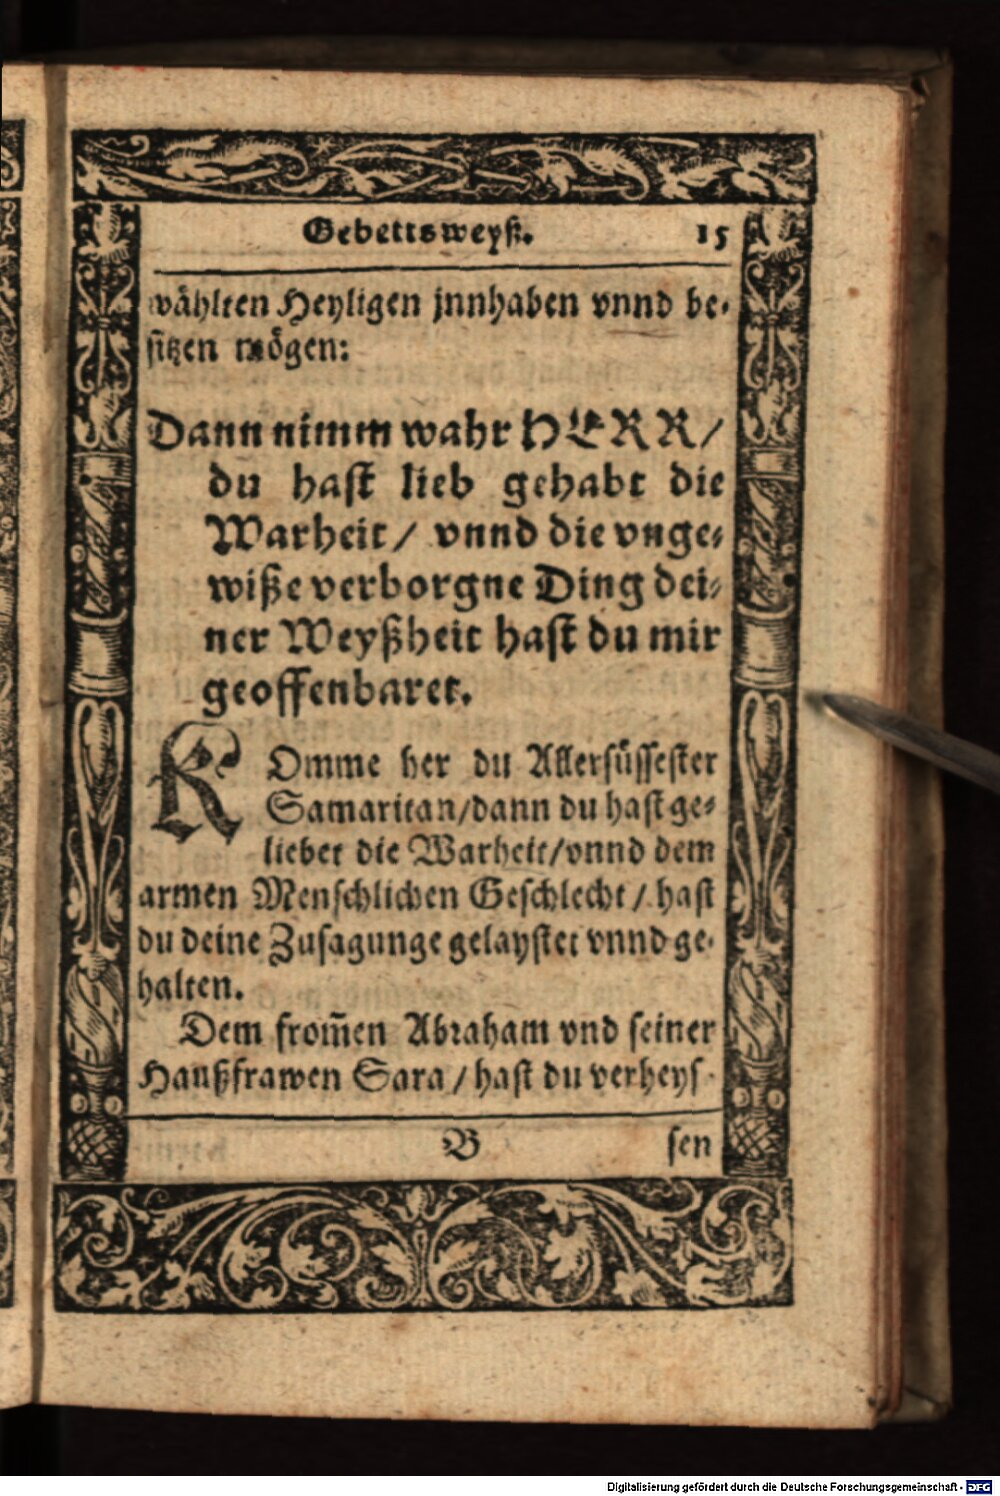 Gebettsweyß. 15
wählten Heyligen jnnhaben vnnd be-
sitzen mögen:
Dann nimm wahr HERR/
du hast lieb gehabt die
Warheit/ vnnd die vnge-
wiße verborgne Ding dei-
ner Weyßheit hast du mir
geoffenbaret.
KOmme her du Allersüssester
Samaritan/dann du hast ge-
liebet die Warheit/vnnd dem
armen Menschlichen Geschlecht/ hast
du deine Zusagunge gelaystet vnnd ge-
halten.
Dem from̃en Abraham vnd seiner
Haußfrawen Sara/ hast du verheys-
B sen
Digitalisierung gefördert durch die Deutsche Forschungsgemeinschaft - DFG